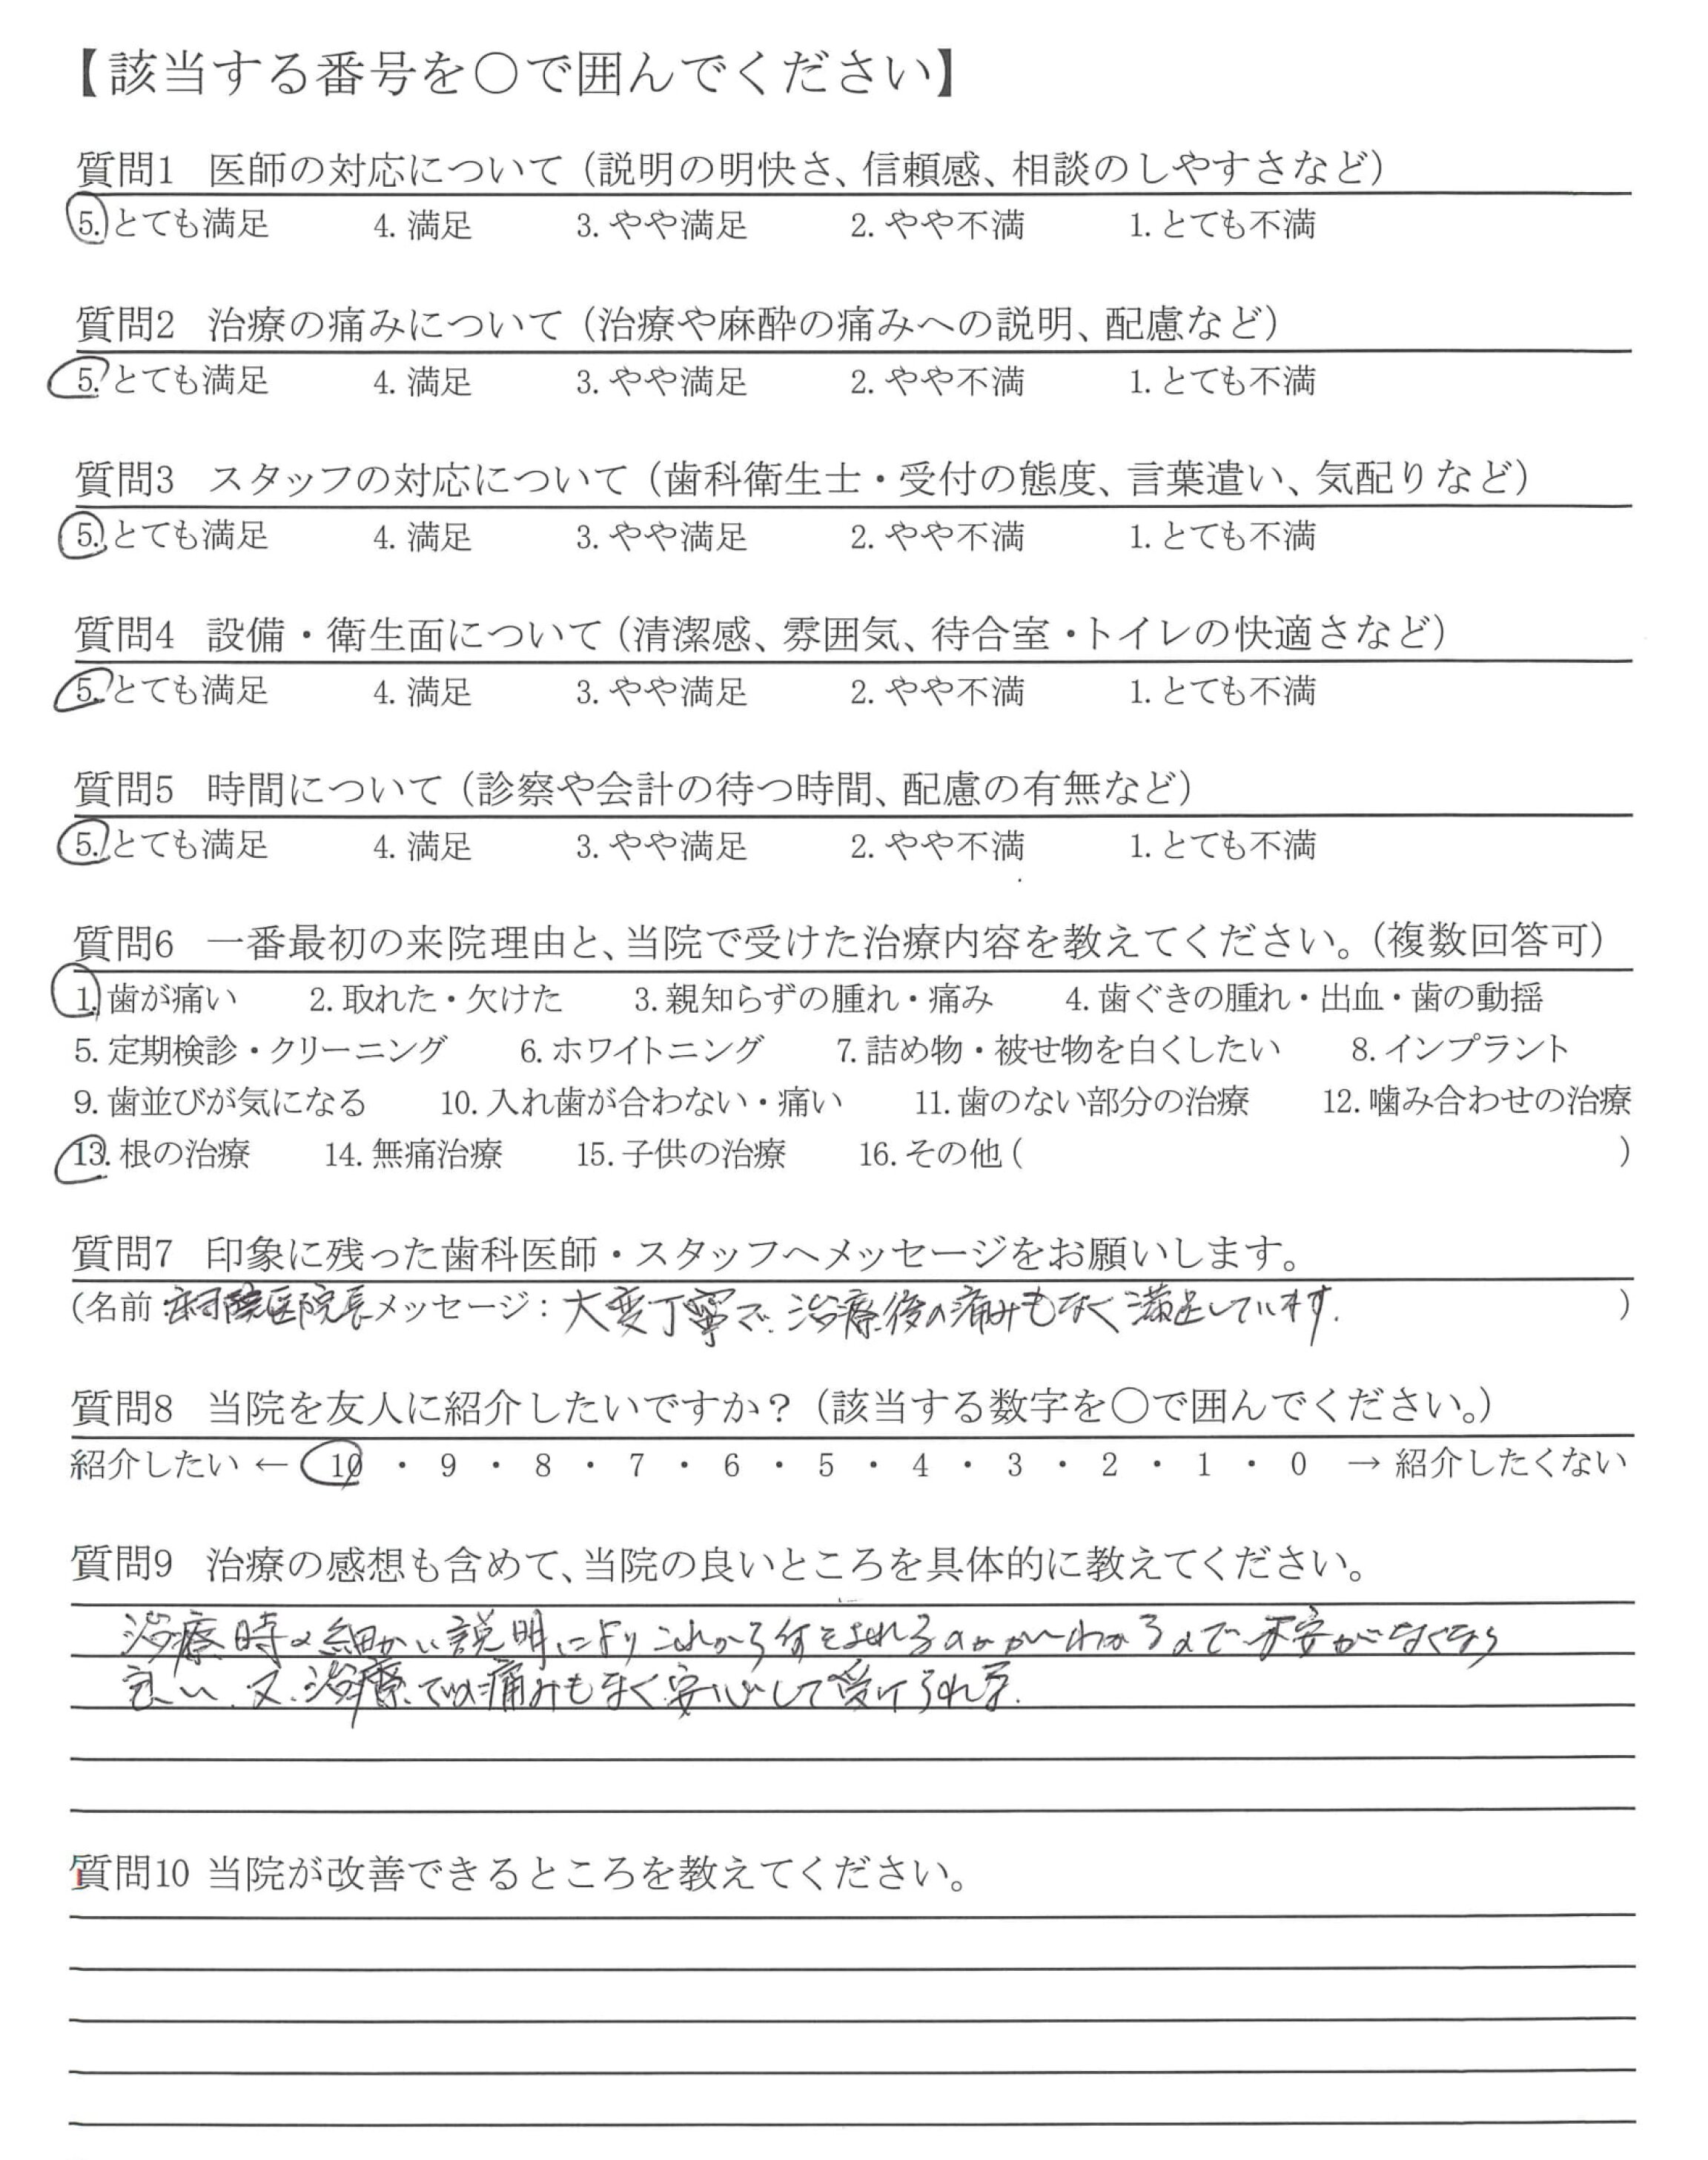 【該当する番号を〇で囲んでください】
質問1 医師の対応について（説明の明快さ、信頼感、相談のしやすさなど）
5. とても満足 4. 満足 3. やや満足 2. やや不満 1. とても不満
質問2 治療の痛みについて（治療や麻酔の痛みへの説明、配慮など）
5. とても満足 4. 満足 3. やや満足 2. やや不満 1. とても不満
質問3 スタッフの対応について（歯科衛生士・受付の態度、言葉遣い、気配りなど）
5. とても満足 4. 満足 3. やや満足 2. やや不満 1. とても不満
質問4 設備・衛生面について（清潔感、雰囲気、待合室・トイレの快適さなど）
5. とても満足 4. 満足 3. やや満足 2. やや不満 1. とても不満
質問5 時間について（診察や会計の待つ時間、配慮の有無など）
5. とても満足 4. 満足 3. やや満足 2. やや不満 1. とても不満
質問6 一番最初の来院理由と、当院で受けた治療内容を教えてください。（複数回答可）
1. 歯が痛い 2. 取れた・欠けた 3. 親知らずの腫れ・痛み 4. 歯ぐきの腫れ・出血・歯の動揺
5. 定期検診・クリーニング 6. ホワイトニング 7. 詰め物・被せ物を白くしたい 8. インプラント
9. 歯並びが気になる 10. 入れ歯が合わない・痛い 11. 歯のない部分の治療 12. 噛み合わせの治療
13. 根の治療 14. 無痛治療 15. 子供の治療 16. その他（ ）
質問7 印象に残った歯科医師・スタッフへメッセージをお願いします。
（名前： 院長 メッセージ：大変丁寧で、治療後の痛みもなく満足しています. ）
質問8 当院を友人に紹介したいですか？（該当する数字を〇で囲んでください。）
紹介したい ← 10 ・ 9 ・ 8 ・ 7 ・ 6 ・ 5 ・ 4 ・ 3 ・ 2 ・ 1 ・ 0 → 紹介したくない
質問9 治療の感想も含めて、当院の良いところを具体的に教えてください。
治療時の細かい説明によりこれから何をされるのかがわかるので不安がなくなり
良い. 又.治療では痛みもなく安心して受けられる.
質問10 当院が改善できるところを教えてください。